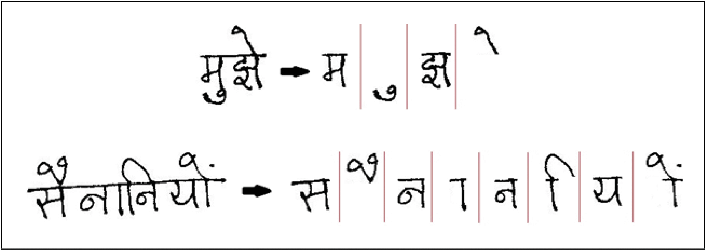 मुझे → म ु झ े
सैनानियों → स ै न ा न ि य ों